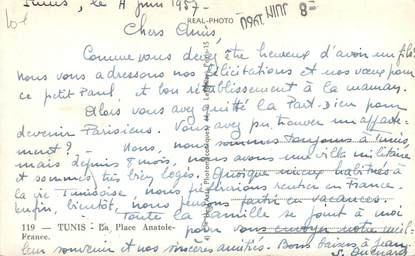 Tunis, le 4 Juin 1957-
REAL-PHOTO
8 JUIN 1960
Chers Amis,
Comme vous devez être heureux d'avoir un fils!
nous vous adressons nos félicitations et nos vœux pour
ce petit Paul et bon rétablissement à la maman.
Alors vous avez quitté la Part-Dieu pour
devenir Parisiens. Vous avez pu trouver un apparte-
ment? - Nous, nous sommes toujours à Tunis,
mais depuis 8 mois, nous avons une villa militaire
et sommes très bien logés. Quoique mieux habitués à
la vie Tunisoise nous préférerions rentrer en France.
Enfin, bientôt, nous pensons partir en vacances.
119 - TUNIS - La Place Anatole-
France.
Toute la famille se joint à moi
pour vous envoyer notre meil-
leur souvenir et nos sincères amitiés. Bons baisers à Jean